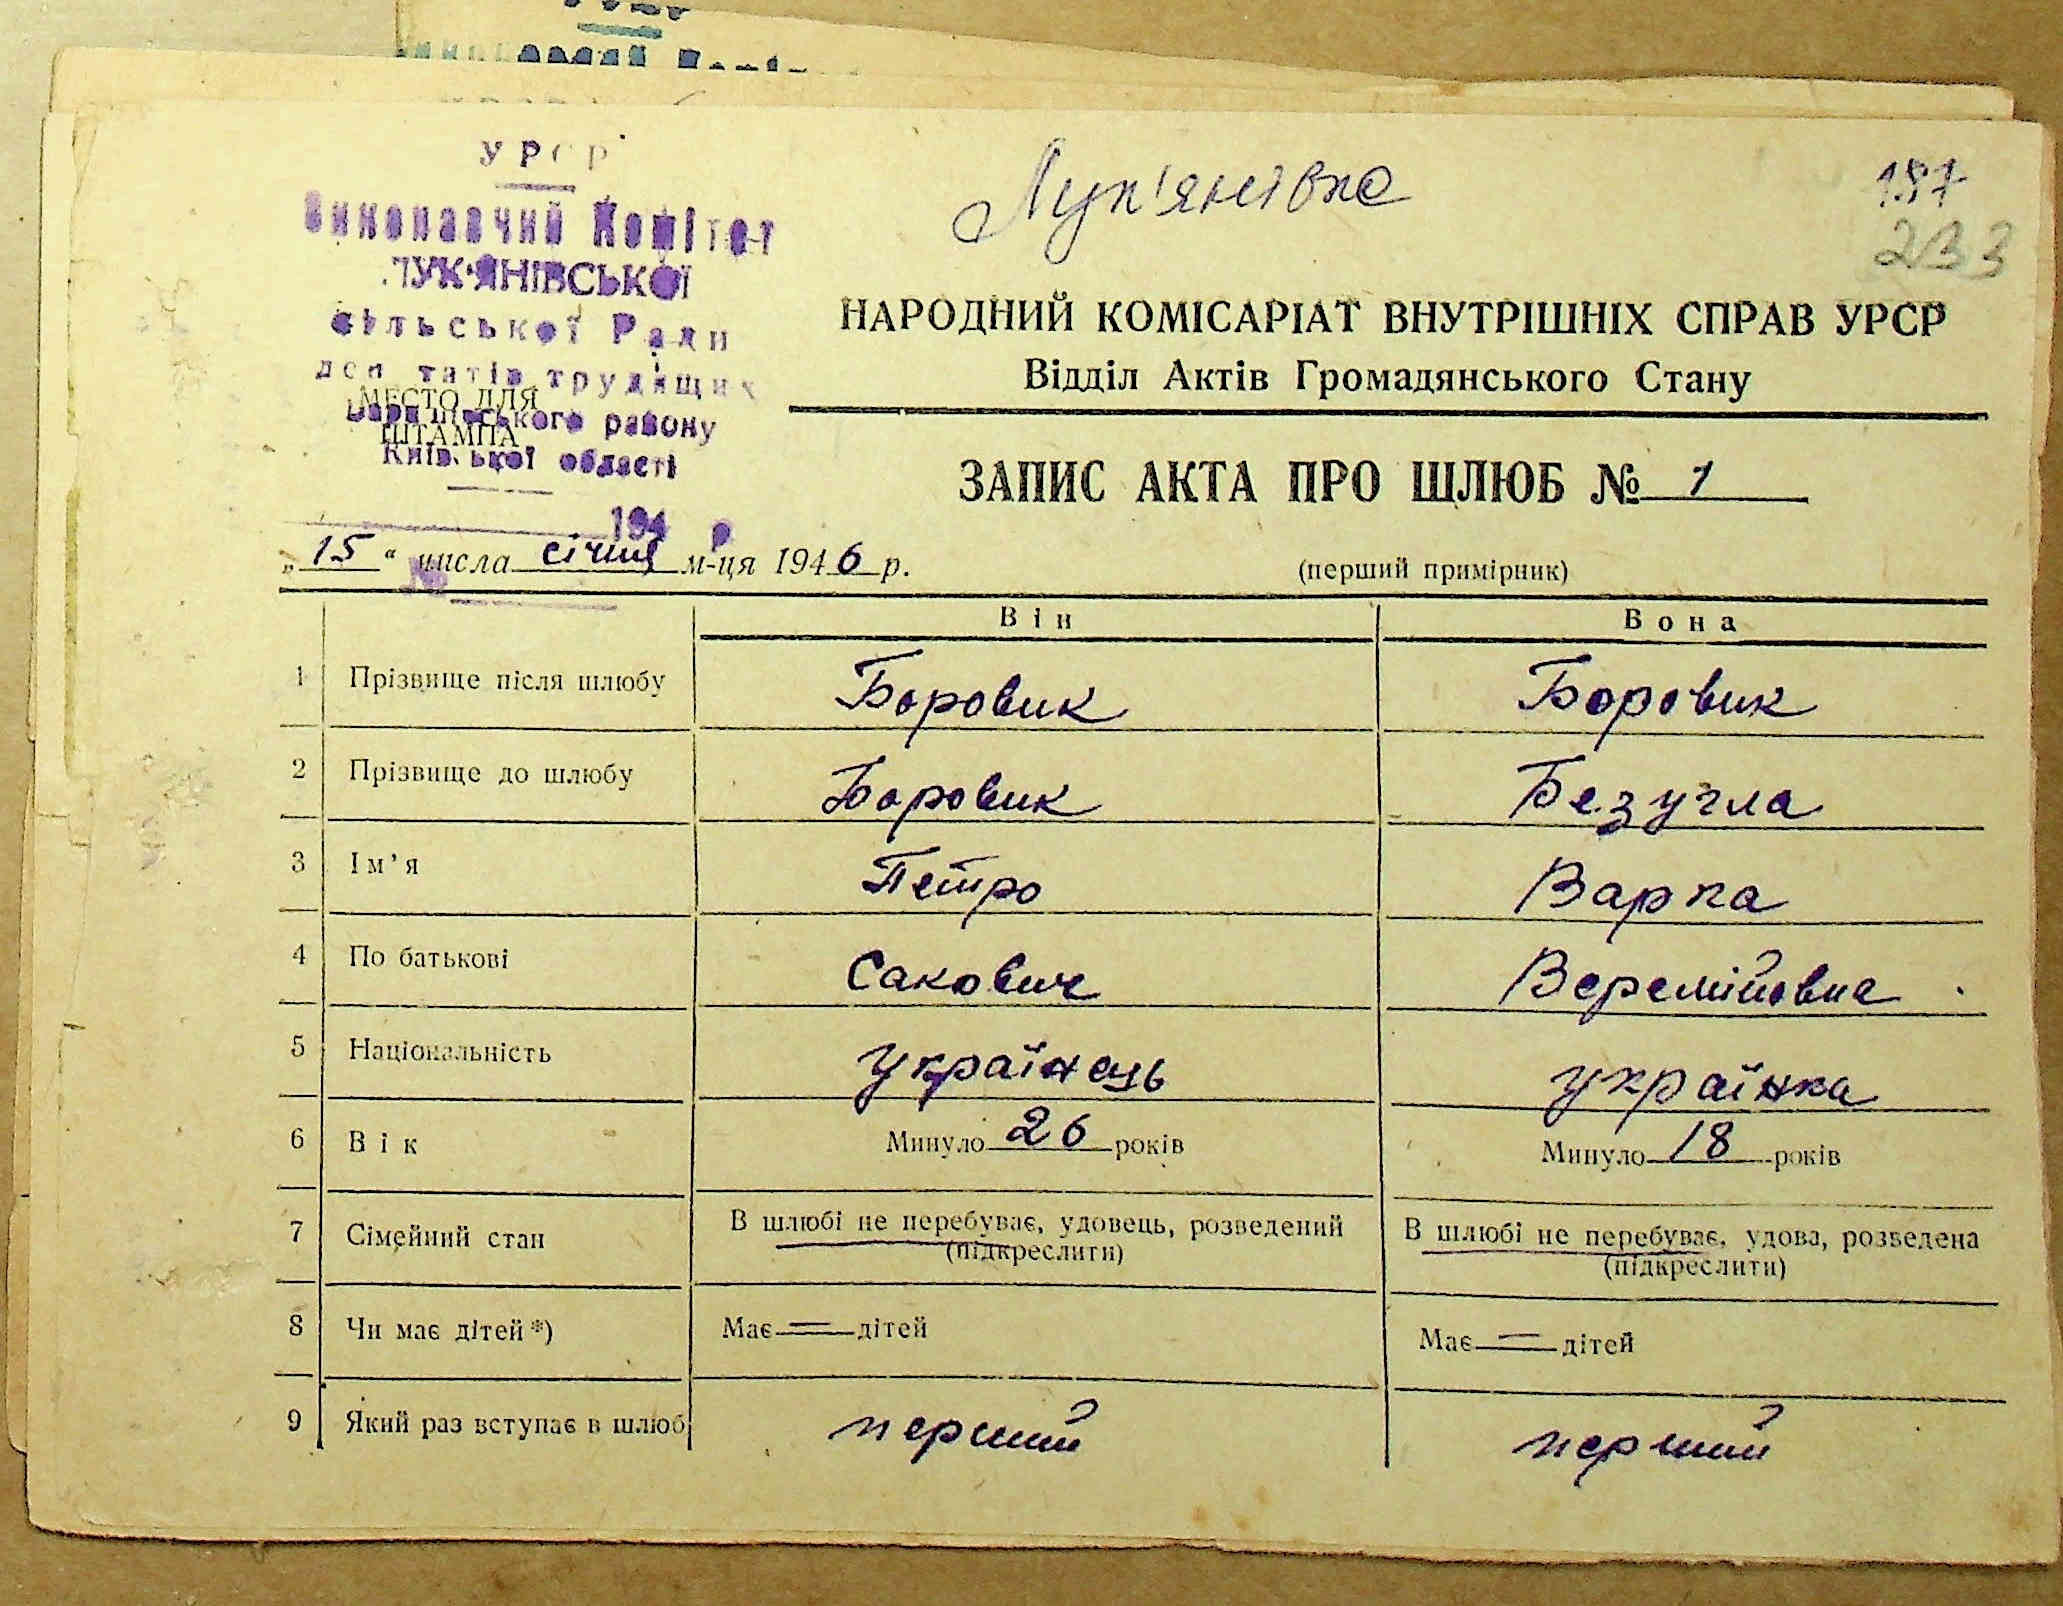 УРСР
Виконавчий Комітет
ЛУК'ЯНІВСЬКОЇ
сільської Ради
деп татів трудящих
МЕСТО ДЛЯ
ШТАМПА
Баришівського району
Київської області
194 р
№
Лук'янівка
187
233
НАРОДНИЙ КОМІСАРІАТ ВНУТРІШНІХ СПРАВ УРСР
Відділ Актів Громадянського Стану
ЗАПИС АКТА ПРО ШЛЮБ № 1
„15“ числа січня м-ця 1946 р.
(перший примірник)
Він Вона
1 Прізвище після шлюбу Боровик Боровик
2 Прізвище до шлюбу Боровик Безугла
3 Ім'я Петро Варка
4 По батькові Сакович Веремійовна
5 Національність українець українка
6 Вік Минуло 26 років Минуло 18 років
7 Сімейний стан В шлюбі не перебуває, удовець, розведений В шлюбі не перебуває, удова, розведена
(підкреслити) (підкреслити)
8 Чи має дітей *) Має = дітей Має = дітей
9 Який раз вступає в шлюб перший перший